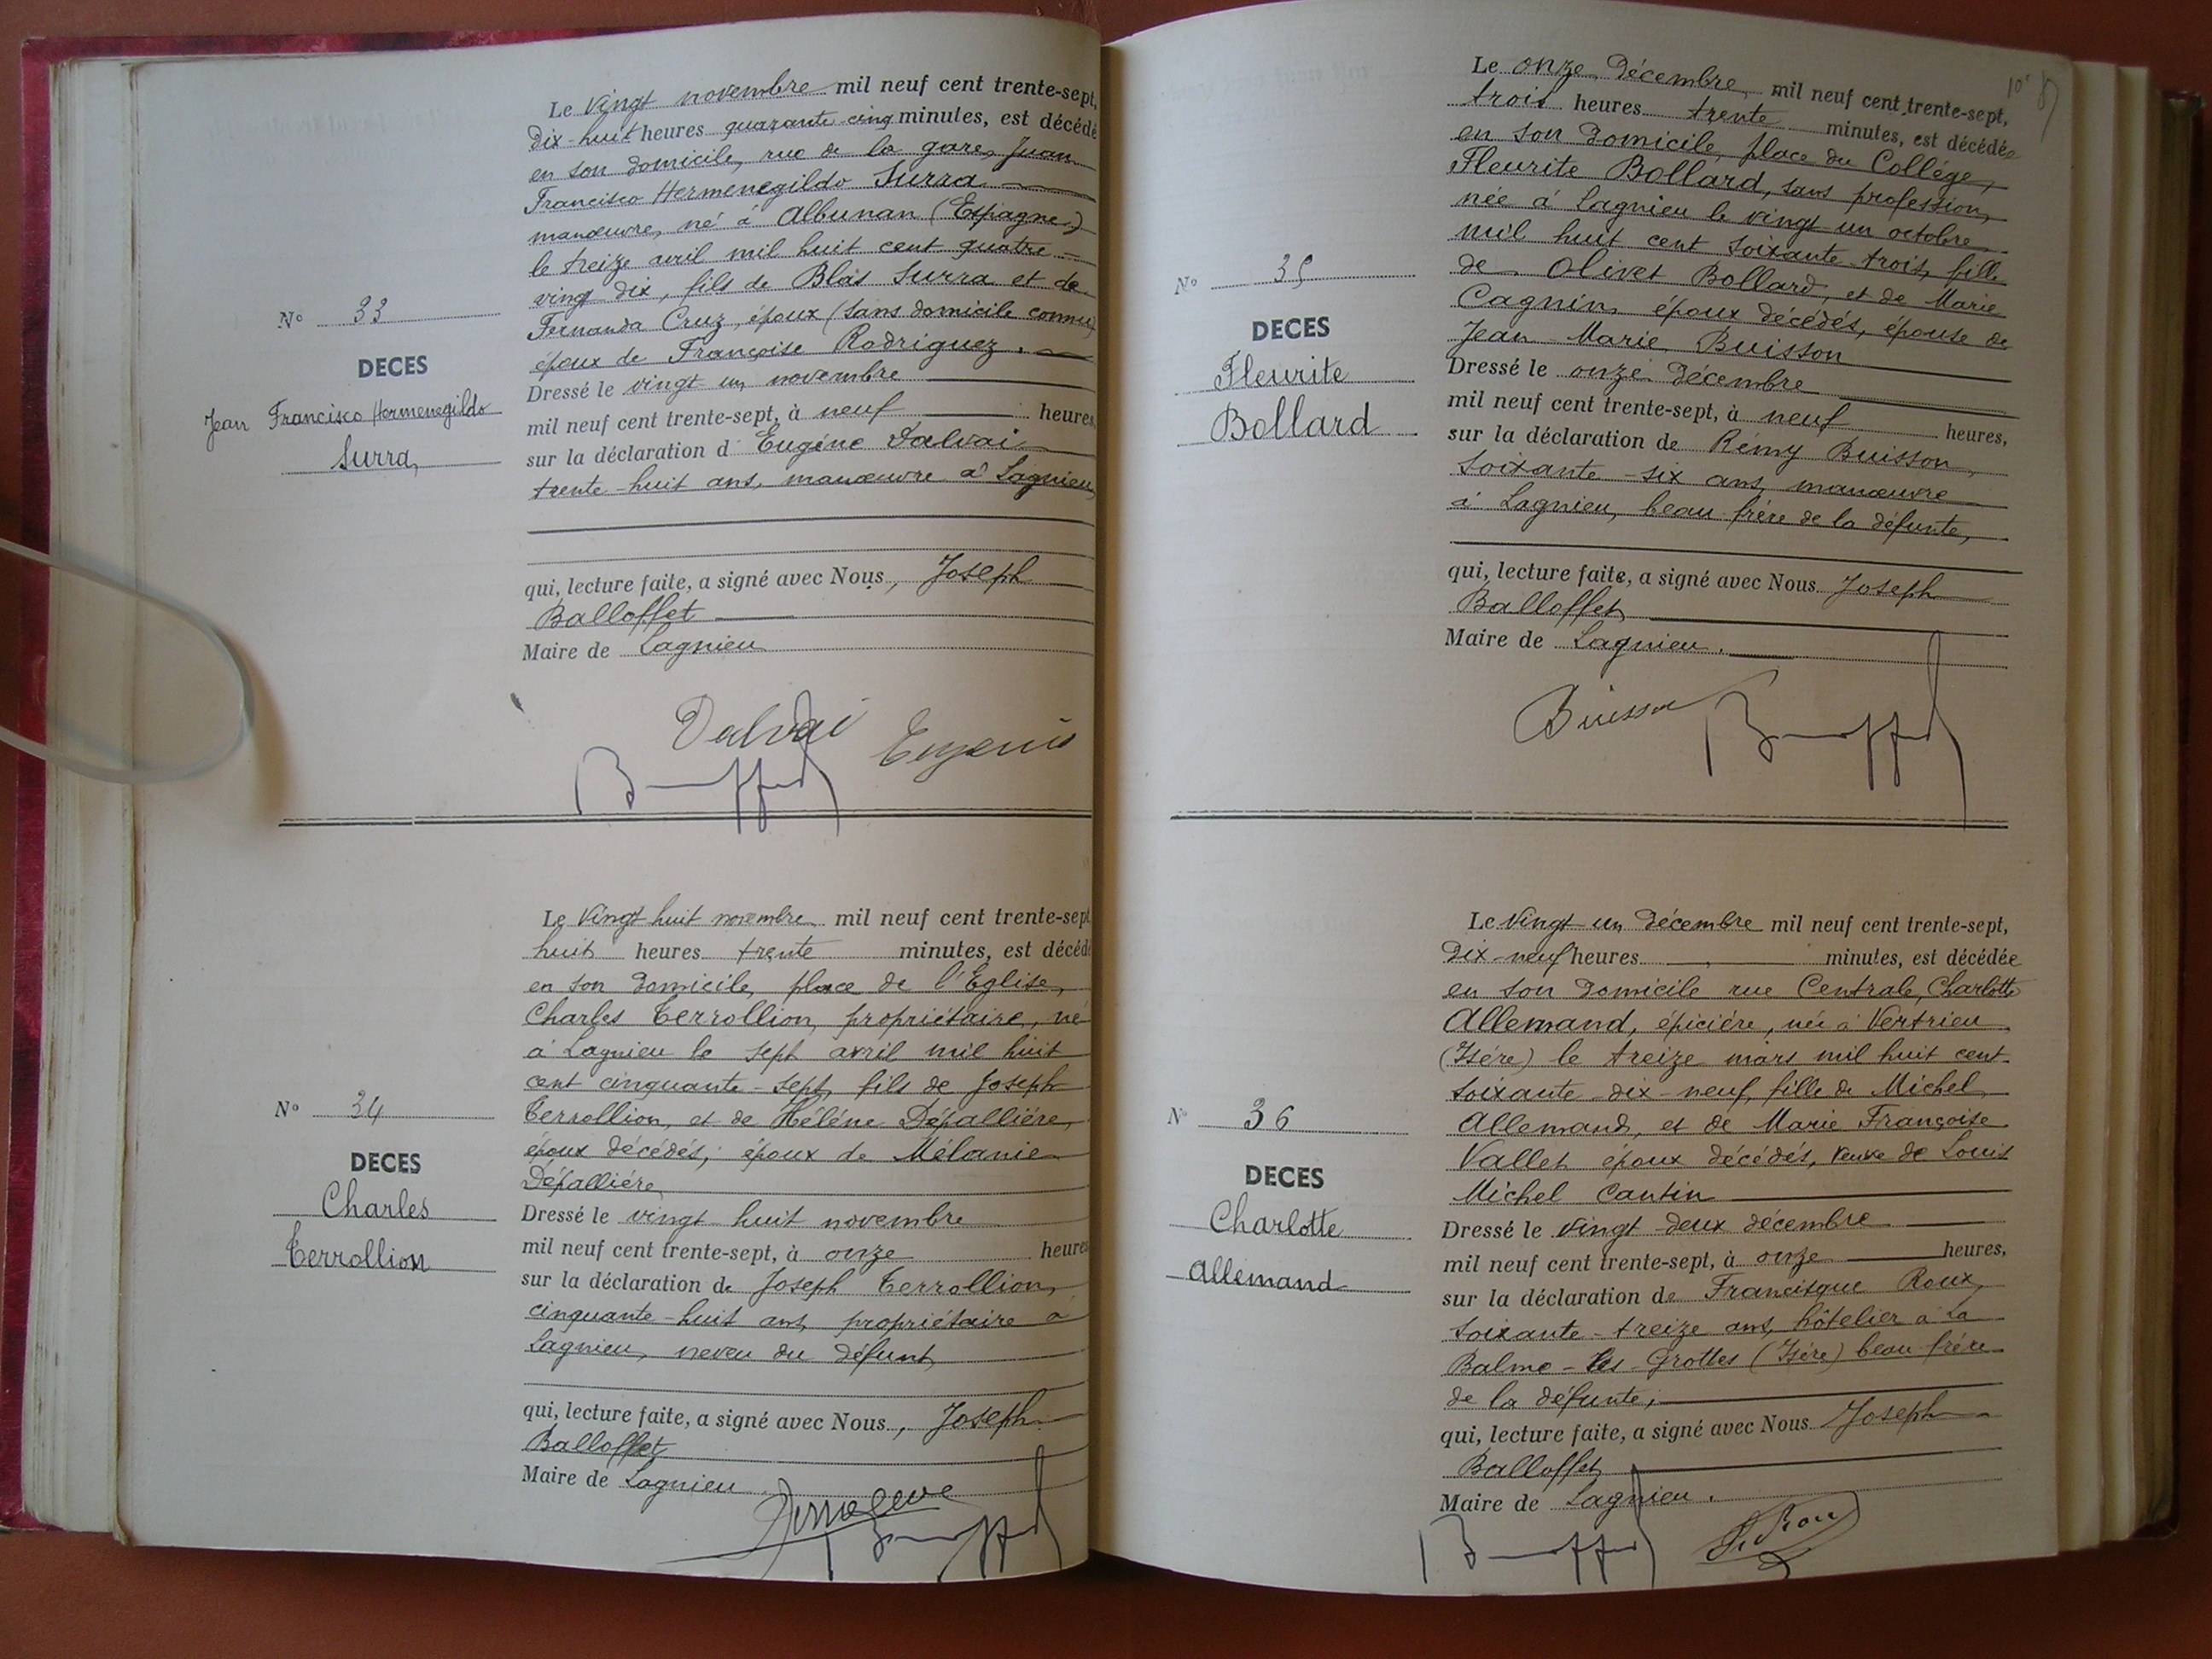 Le vingt novembre mil neuf cent trente-sept,
dix-huit heures quarante cinq minutes, est décédé
en son domicile, rue de la gare, Juan
Francisco Hermenegildo Surra
manœuvre, né à Albunan (Espagne)
le treize avril mil huit cent quatre-
vingt dix, fils de Blas Surra et de
Fernanda Cruz, époux (sans domicile connu)
époux de Françoise Rodriguez.
Dressé le vingt un novembre
mil neuf cent trente-sept, à neuf heures,
sur la déclaration d'Eugène Dalvai
trente-huit ans, manœuvre à Lagnieu,
qui, lecture faite, a signé avec Nous, Joseph
Balloffet
Maire de Lagnieu
N° 33
DECES
Jean Francisco Hermenegildo
Surra
Dalvai Eugenio
Le vingt huit novembre mil neuf cent trente-sept
huit heures trente minutes, est décédé
en son domicile, place de l'Eglise,
Charles Terrollion, propriétaire, né
à Lagnieu le sept avril mil huit
cent cinquante-sept, fils de Joseph
Terrollion, et de Hélène Dépallière,
époux décédés; époux de Mélanie
Dépallière
Dressé le vingt huit novembre
mil neuf cent trente-sept, à onze heures
sur la déclaration de Joseph Terrollion,
cinquante-huit ans, propriétaire à
Lagnieu, neveu du défunt,
qui, lecture faite, a signé avec Nous, Joseph
Balloffet
Maire de Lagnieu
N° 34
DECES
Charles
Terrollion
10e 87
Le onze Décembre mil neuf cent trente-sept,
trois heures trente minutes, est décédée
en son domicile, place du Collège,
Fleurite Bollard, sans profession,
née à Lagnieu le vingt un octobre
mil huit cent soixante-trois, fille
de Olivet Bollard, et de Marie
Cagnin, époux décédés, épouse de
Jean-Marie Buisson
Dressé le onze Décembre
mil neuf cent trente-sept, à neuf heures,
sur la déclaration de Rémy Buisson,
soixante-six ans, manœuvre
à Lagnieu, beau-frère de la défunte,
qui, lecture faite, a signé avec Nous Joseph
Balloffet
Maire de Lagnieu.
N° 35
DECES
Fleurite
Bollard
Buisson
Le vingt un décembre mil neuf cent trente-sept,
dix-neuf heures minutes, est décédée
en son domicile rue Centrale, Charlotte
Allemand, épicière, née à Vertrieu
(Isère) le treize mars mil huit cent
soixante-dix-neuf, fille de Michel
Allemand, et de Marie Françoise
Vallet époux décédés, veuve de Louis
Michel Cantin
Dressé le vingt-deux décembre
mil neuf cent trente-sept, à onze heures,
sur la déclaration de Francisque Roux,
soixante-treize ans, hôtelier à La
Balme-les-Grottes (Isère) beau-frère
de la défunte;
qui, lecture faite, a signé avec Nous Joseph
Balloffet
Maire de Lagnieu.
N° 36
DECES
Charlotte
Allemand